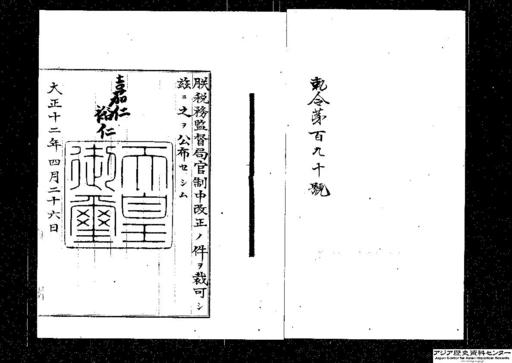 勅令第百九十號
朕税務監督局官制中改正ノ件ヲ裁可シ
玆ニ之ヲ公布セシム
嘉仁
裕仁
天皇
御璽
大正十二年四月二十六日
アジア歴史資料センター
Japan Center for Asian Historical Records